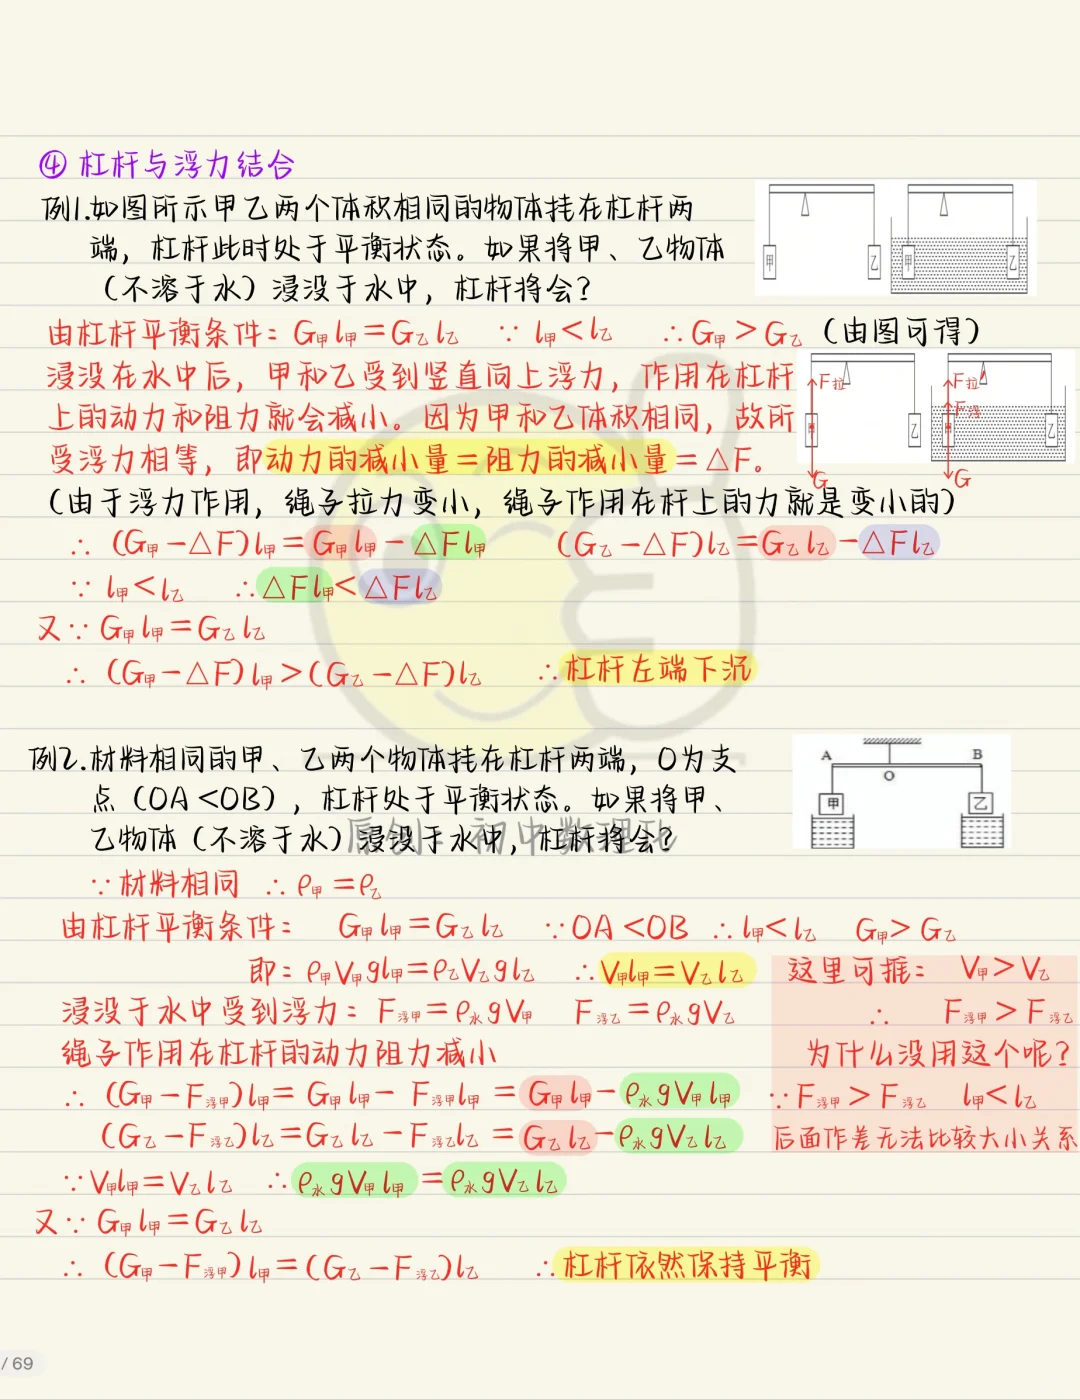 ④ 杠杆与浮力结合
例1.如图所示甲乙两个体积相同的物体挂在杠杆两
端，杠杆此时处于平衡状态。如果将甲、乙物体
（不溶于水）浸没于水中，杠杆将会？
甲 乙 甲 乙
由杠杆平衡条件：G甲l甲＝G乙l乙 ∵ l甲＜l乙 ∴G甲＞G乙（由图可得）
浸没在水中后，甲和乙受到竖直向上浮力，作用在杠杆
上的动力和阻力就会减小。因为甲和乙体积相同，故所
受浮力相等，即动力的减小量＝阻力的减小量＝△F。
F拉 F拉
F浮
甲 乙 甲 乙
G G
（由于浮力作用，绳子拉力变小，绳子作用在杆上的力就是变小的）
∴（G甲－△F)l甲＝G甲l甲－△Fl甲 （G乙－△F)l乙＝G乙l乙－△Fl乙
∵ l甲＜l乙 ∴△Fl甲＜△Fl乙
又∵ G甲l甲＝G乙l乙
∴（G甲－△F)l甲＞(G乙－△F)l乙 ∴杠杆左端下沉
例2.材料相同的甲、乙两个物体挂在杠杆两端，O为支
点（OA＜OB），杠杆处于平衡状态。如果将甲、
乙物体（不溶于水）浸没于水中，杠杆将会？
A B
O
甲 乙
原创：初中数理化
∵材料相同 ∴ρ甲＝ρ乙
由杠杆平衡条件： G甲l甲＝G乙l乙 ∵OA＜OB ∴l甲＜l乙 G甲＞G乙
即：ρ甲V甲gl甲＝ρ乙V乙gl乙 ∴V甲l甲＝V乙l乙 这里可推： V甲＞V乙
浸没于水中受到浮力：F浮甲＝ρ水gV甲 F浮乙＝ρ水gV乙 ∴ F浮甲＞F浮乙
绳子作用在杠杆的动力阻力减小 为什么没用这个呢？
∴（G甲－F浮甲)l甲＝G甲l甲－F浮甲l甲＝G甲l甲－ρ水gV甲l甲 ∵F浮甲＞F浮乙 l甲＜l乙
（G乙－F浮乙)l乙＝G乙l乙－F浮乙l乙＝G乙l乙－ρ水gV乙l乙 后面作差无法比较大小关系
∵V甲l甲＝V乙l乙 ∴ρ水gV甲l甲＝ρ水gV乙l乙
又∵ G甲l甲＝G乙l乙
∴（G甲－F浮甲)l甲＝(G乙－F浮乙)l乙 ∴杠杆依然保持平衡
/ 69